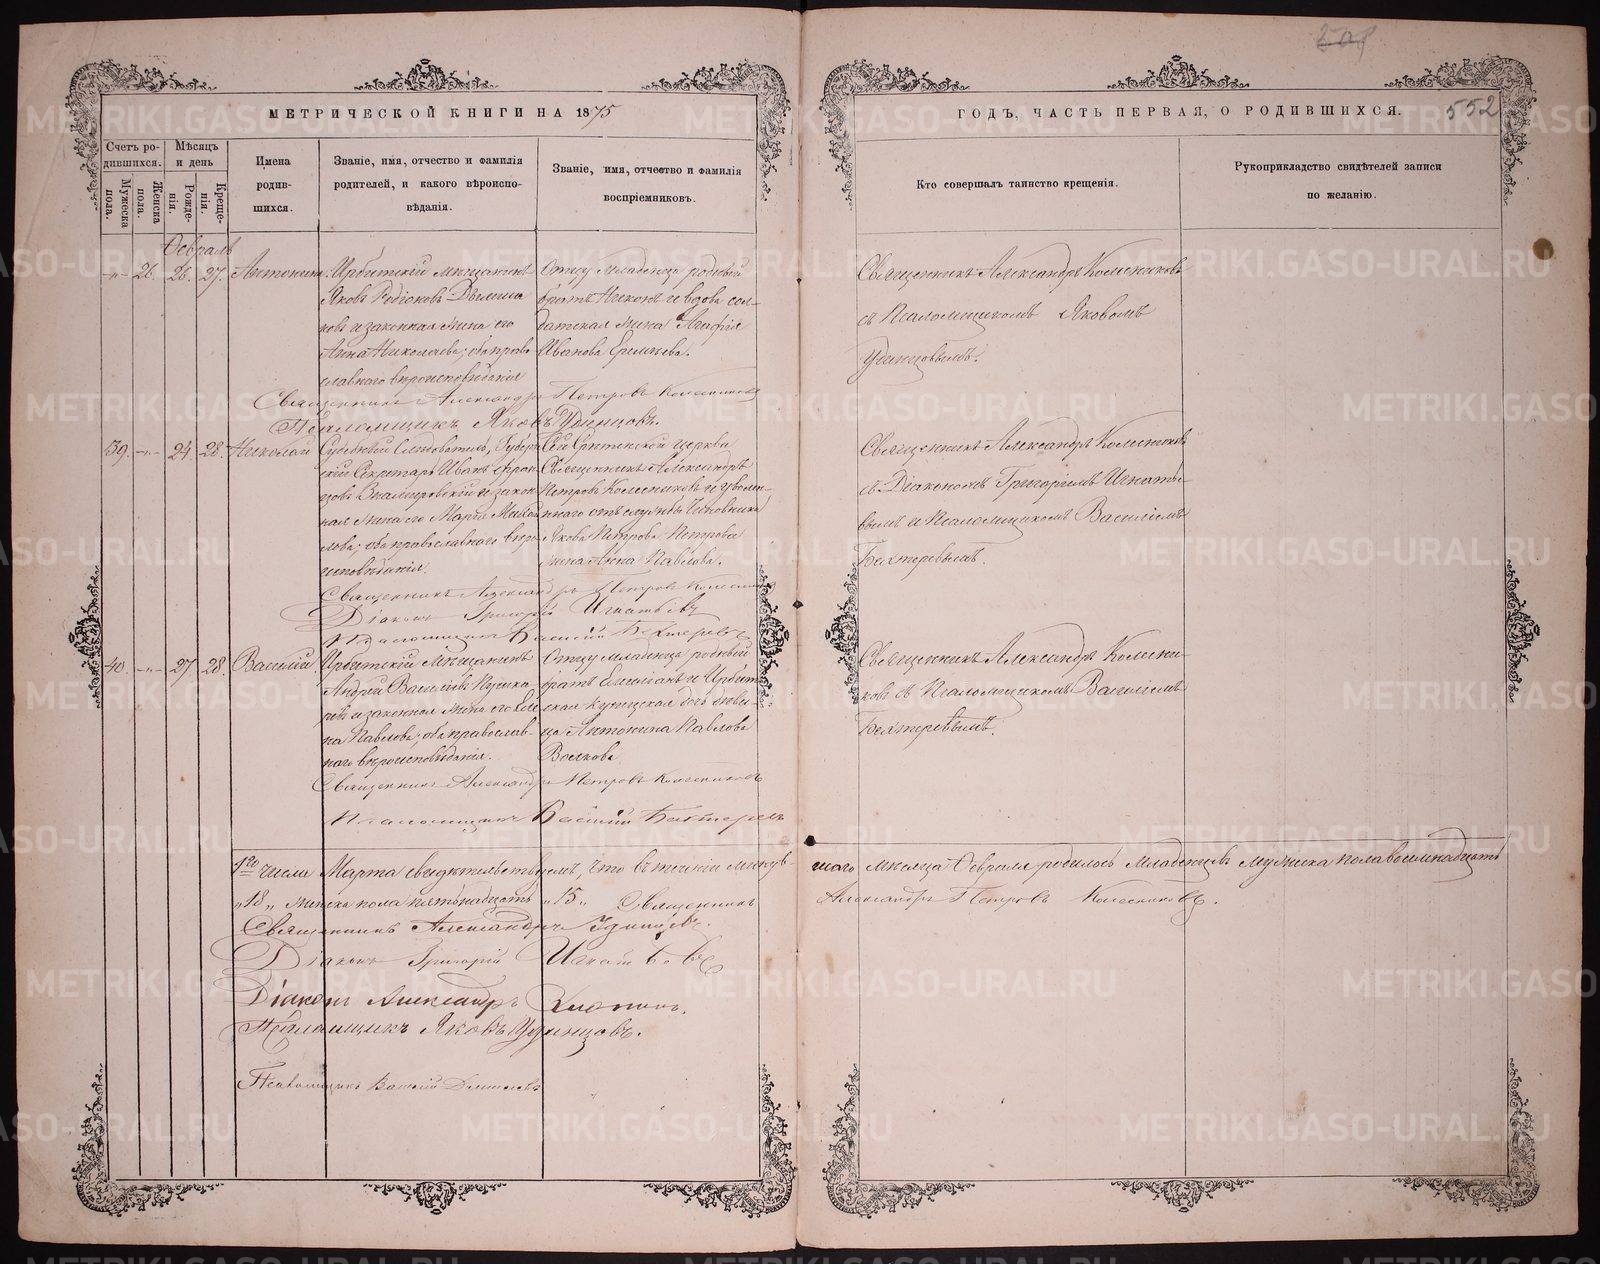 552
МЕТРИЧЕСКОЙ КНИГИ НА 1875
ГОДЪ, ЧАСТЬ ПЕРВАЯ, О РОДИВШИХСЯ.
Счетъ родившихся.
Мужеска пола.
Женска пола.
Мѣсяцъ и день
Рожденія.
Крещенія.
Имена родившихся.
Званіе, имя, отчество и фамилія
родителей, и какого вѣроиспо-
вѣданія.
Званіе, имя, отчество и фамилія
воспріемниковъ.
Кто совершалъ таинство крещенія.
Рукоприкладство свидѣтелей записи
по желанію.
Февраль
-"- 26. 26. 27.
Антонина.
Ирбитскій мѣщанинъ
Яковъ Родіоновъ
ковъ и законная жена его
Анна Николаева; оба право-
славнаго вѣроисповѣданія
Отцу младенца родной
братъ Никонъ и вдова сол-
датская жена Агафія
Иванова
Священникъ Александръ Колесниковъ
съ Псаломщикомъ Яковомъ
Удинцовымъ.
Священникъ Александръ Петровъ Колесниковъ
Псаломщикъ Яковъ Удинцовъ.
39. -"- 24. 28.
Николай
Судебный Слѣдователь, Губерн-
скій Секретарь Иванъ
и закон-
ная жена его Марія Михай-
лова; оба православнаго вѣро-
исповѣданія.
Сей Срѣтенской церкви
Священникъ Александръ
Петровъ Колесниковъ и уволен-
наго отъ службы Чиновника
Якова Петрова Петрова
жена Анна Павлова.
Священникъ Александръ Колесниковъ
съ Діакономъ Григоріемъ Игнатье-
вымъ и Псаломщикомъ Василіемъ
Бехтеревымъ.
Священникъ Александръ Петровъ Колесниковъ
Діаконъ Григорій Игнатьевъ
Псаломщикъ Василій Бехтеревъ
40. -"- 27. 28.
Василій
Ирбитскій мѣщанинъ
Андрей Васильевъ
ревъ и законная жена его Еле-
на Павлова; оба православ-
наго вѣроисповѣданія.
Отцу младенца родной
братъ и Ирбит-
ская купеческая дочь дѣви-
ца Антонина Павлова
Волкова
Священникъ Александръ Колесни-
ковъ съ Псаломщикомъ Василіемъ
Бехтеревымъ.
Священникъ Александръ Петровъ Колесниковъ
Псаломщикъ Василій Бехтеревъ
1го числа Марта свидѣтельствуемъ, что въ теченіи минув-
шаго мѣсяца Февраля родилось младенцевъ мужеска пола восемнадцать
"18" женска пола пятьнадцать "15" Священникъ
Александръ Петровъ Колесниковъ.
Священникъ Александръ Удинцевъ.
Діаконъ Григорій Игнатьевъ
Діаконъ Александръ
Псаломщикъ Яковъ Удинцовъ.
Псаломщикъ Василій
METRIKI.GASO-URAL.RU